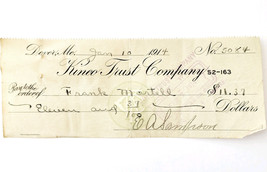 Dover, Mo. Jan 10 1914 No.
Trust Company 52-163
Pay to the order of Frank Martell $11.37
Eleven and 37
100 Dollars